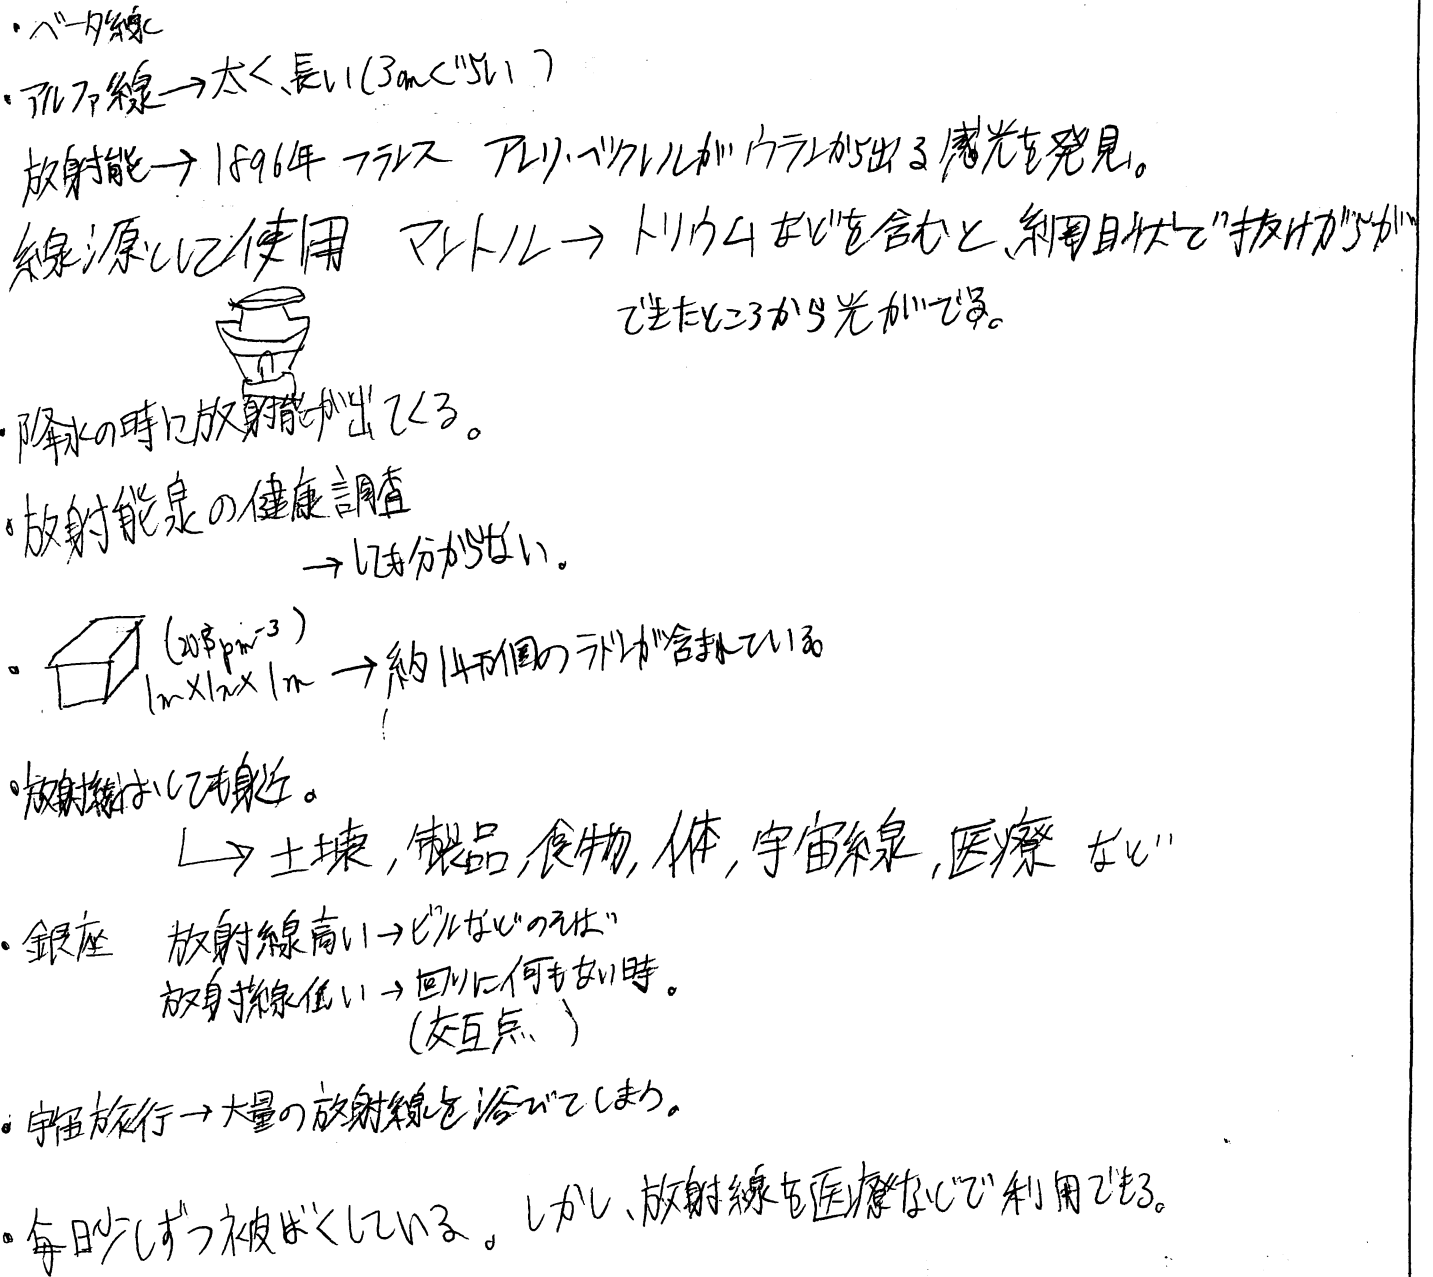 ・ベータ線
・アルファ線→太く、長い(3cmぐらい)
放射能→1896年 フランス アンリ・ベクレルがウランから出る感光を発見。
線源として使用 マントル→トリウムなどを含むと、網目状で抜けがらが
できたところから光がでる。
・降水の時に放射能が出てくる。
・放射能泉の健康調査
→しても分からない。
・
1m×1m×1m →約14万個のラドンが含まれている
・放射線はとても身近。
→土壌,製品,食物,人体,宇宙線,医療 など
・銀座 放射線高い→ビルなどのそば
放射線低い→回りに何もない時。
(交互点)
・宇宙旅行→大量の放射線を浴びてしまう。
・毎日少しずつ被ばくしている。しかし、放射線を医療などで利用できる。